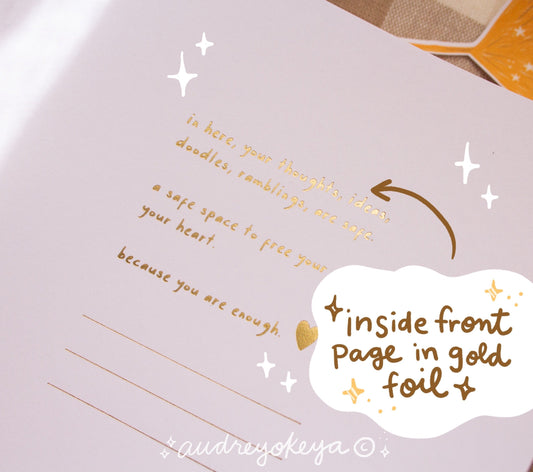 in here, your thoughts, ideas,
doodles, ramblings, are safe.
a safe space to free your
your heart.
because you are enough.
inside front
page in gold
foil
audreyokeya ©